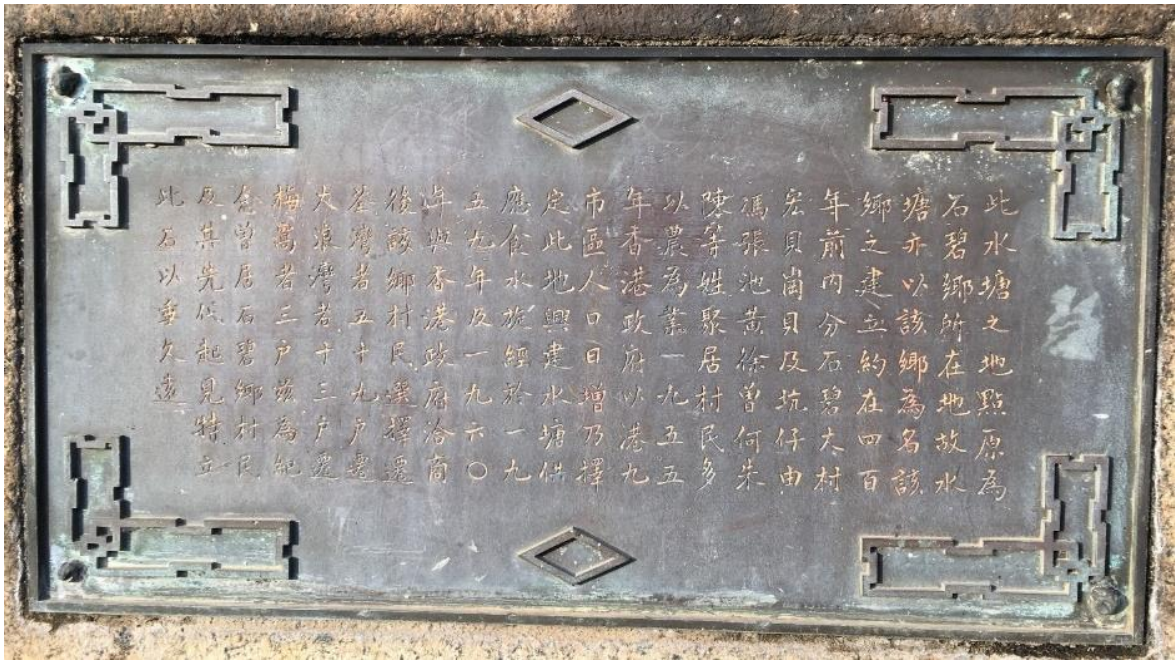 此水塘之地點原為
石碧鄉所在地故水
塘亦以該鄉為名該
鄉之建立約在四百
年前內分石碧大村
宏貝崗貝及坑仔由
馮張池黃徐曾何朱
陳等姓聚居村民多
以農為業一九五五
年香港政府以港九
市區人口日增乃擇
定此地興建水塘供
應食水旋經於一九
五九年及一九六〇
年與香港政府洽商
後該鄉村民選擇遷
荃灣者五十九戶遷
大浪灣者十三戶遷
梅窩者三戶茲為紀
念曾居石碧鄉村民
及其先代起見特立
此石以垂久遠